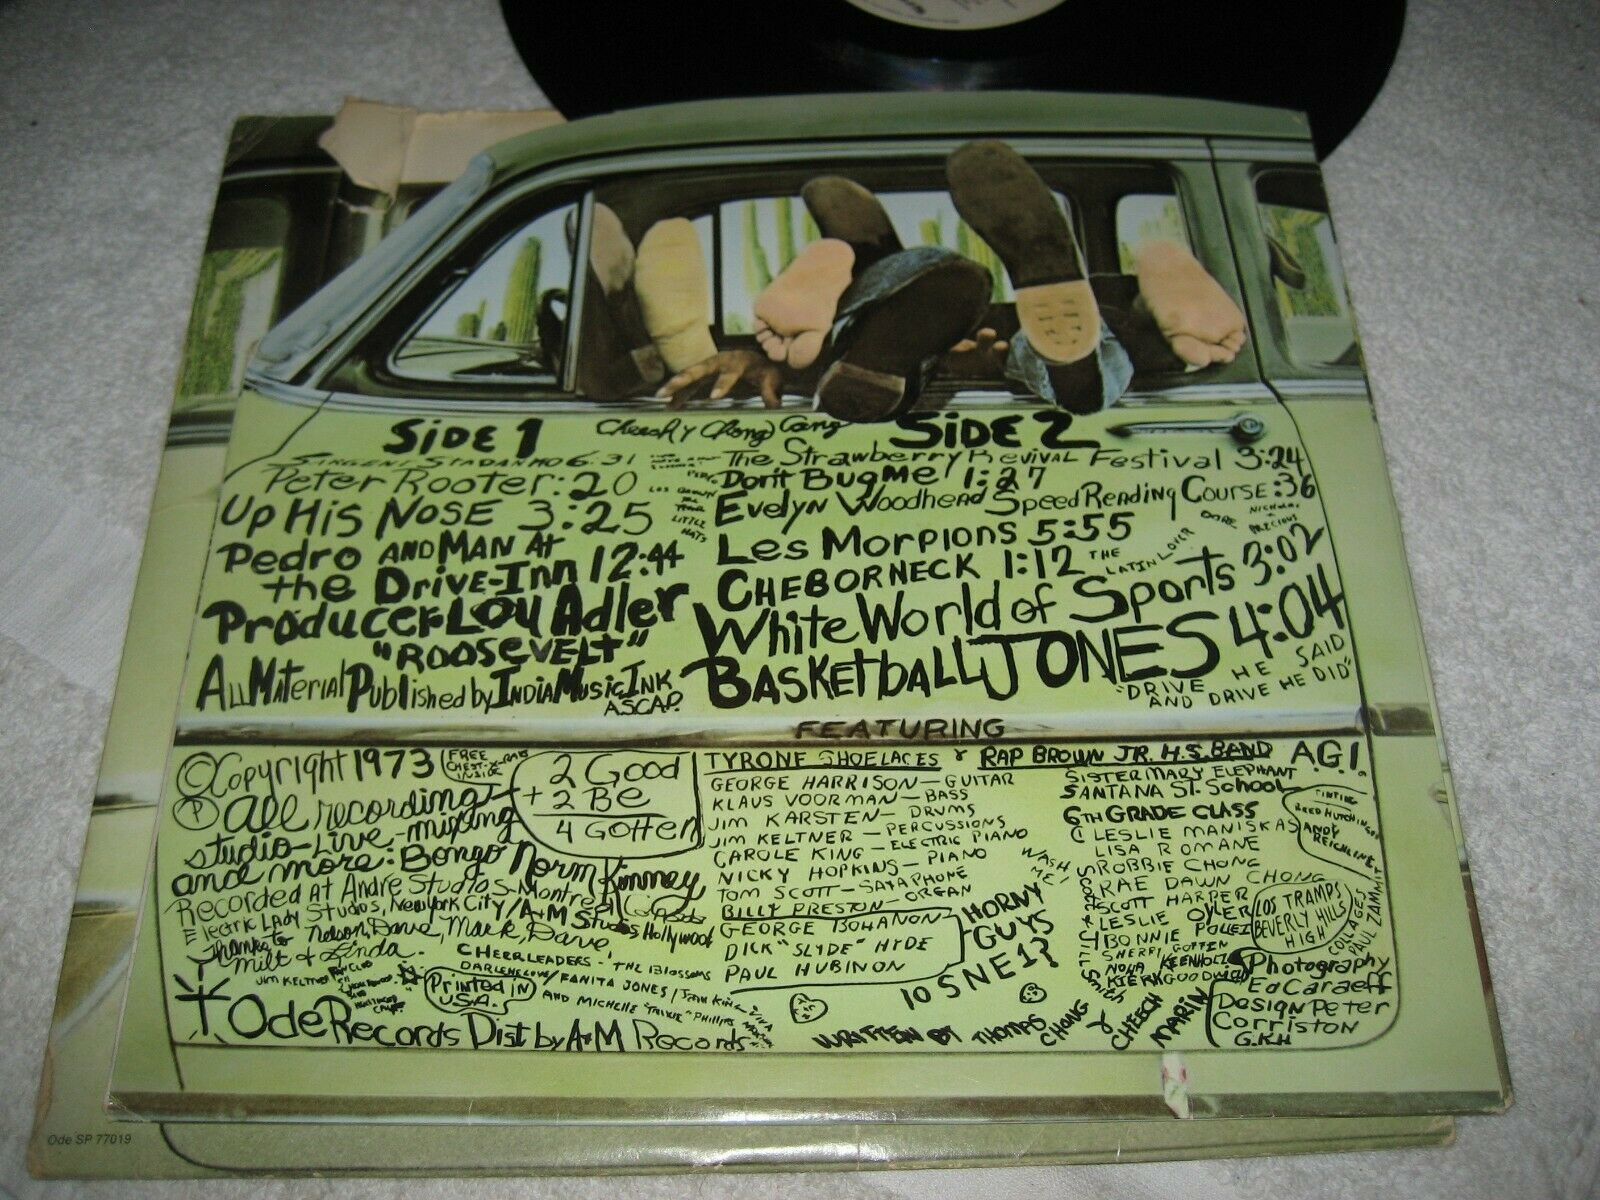 SIDE 1
Cheech y Chong Gang
SIDE 2
6:31
Peter Rooter :20
Up His Nose 3:25
Pedro AND MAN AT
the Drive-Inn 12:44
Producer Lou Adler
"ROOSEVELT"
All Material Published by India Music Ink
ASCAP.
The Strawberry Revival Festival 3:24
Don't Bug Me 1:27
Evelyn Woodhead Speed Reading Course :36
Les Morpions 5:55
CHEBORNECK 1:12
THE LATIN LOVER
White World of Sports 3:02
BASKETBALL JONES 4:04
"DRIVE HE SAID
AND DRIVE HE DID"
FEATURING
© Copyright 1973
FREE
CHEST-X-RAYS
INSIDE
2 Good
+ 2 Be
4 Gotten
Ⓟ All recording-
studio-Live-mixing
and more: Bongo Norm Kinney
Recorded At Andre Studios-Montreal
Electric Lady Studios, New York City/A+M Studios Hollywood
Thanks to Nelson, Dave, Mark, Dave,
Milt & Linda.
JIM KELTNER FAN CLUB
CHEERLEADERS- THE Blossoms
DARLENE LOVE/FANITA JONES/Jean King
AND MICHELLE "TRIXIE" PHILLIPS
Printed in
U.S.A.
Ode Records Dist by A+M Records
TYRONE SHOELACES & RAP BROWN JR. H.S. BAND
GEORGE HARRISON-GUITAR
KLAUS VOORMAN-BASS
JIM KARSTEN-DRUMS
JIM KELTNER-PERCUSSIONS
CAROLE KING-ELECTRIC PIANO
NICKY HOPKINS-PIANO
TOM SCOTT-SAXAPHONE
BILLY PRESTON-ORGAN
GEORGE BOHANON
DICK "SLYDE" HYDE
PAUL HUBINON
HORNY
GUYS
10 S N E 1?
WASH
ME!
A.G.I.
SISTER MARY ELEPHANT
SANTANA ST. SCHOOL
6TH GRADE CLASS
LESLIE MANISKAS
LISA ROMANE
ROBBIE CHONG
RAE DAWN CHONG
SCOTT HARPER
LESLIE OYLER
BONNIE POUEZ
SHERRY GOFFIN
NOHA KEENHOLZ
KIERK GOODWIN
TINTING
REED HUTCHINSON
ANDY
REICHLINE
LOS TRAMPS
BEVERLY HILLS
HIGH
COLLAGES
PAUL ZAMMIT
Photography
Ed Caraeff
Design Peter
Corriston
G.K.H
WRITTEN BY THOMAS
CHONG
&
CHEECH
MARIN
Ode SP 77019